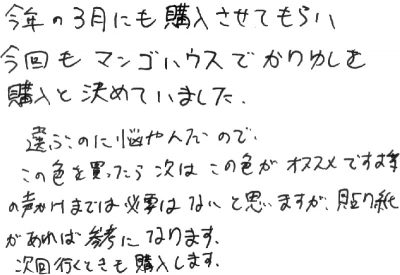 今年の3月にも購入させてもらい
今回もマンゴハウスでかりゆしを
購入と決めていました.
選ぶのに悩やんだので.
この色を買ったら次はこの色がオススメです等
の声かけまでは必要はないと思いますが、貼り紙
があれば参考になります.
次回行くときも購入します.